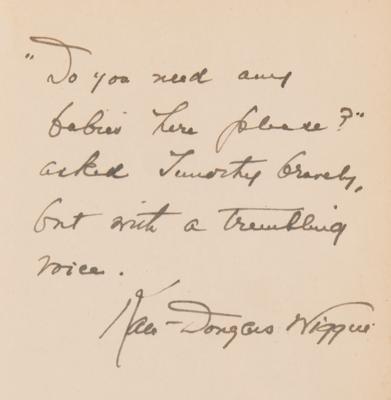 "Do you need any
babies here please?"
asked Timothy bravely,
but with a trembling
voice.
Kate Douglas Wiggin